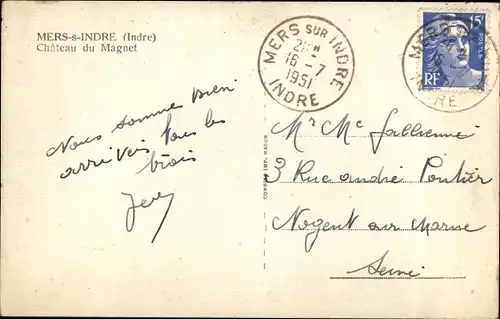 MERS-s-INDRE (Indre)
Château du Magnet
MERS SUR INDRE
16-7
1951
INDRE
15F
POSTES
RF
MERS
INDRE
Nous sommes bien
arrivés tous les
trois
COMBIER IMP. MACON
Mr Me
3 Rue andré Pontier
Nogent sur Marne
Seine